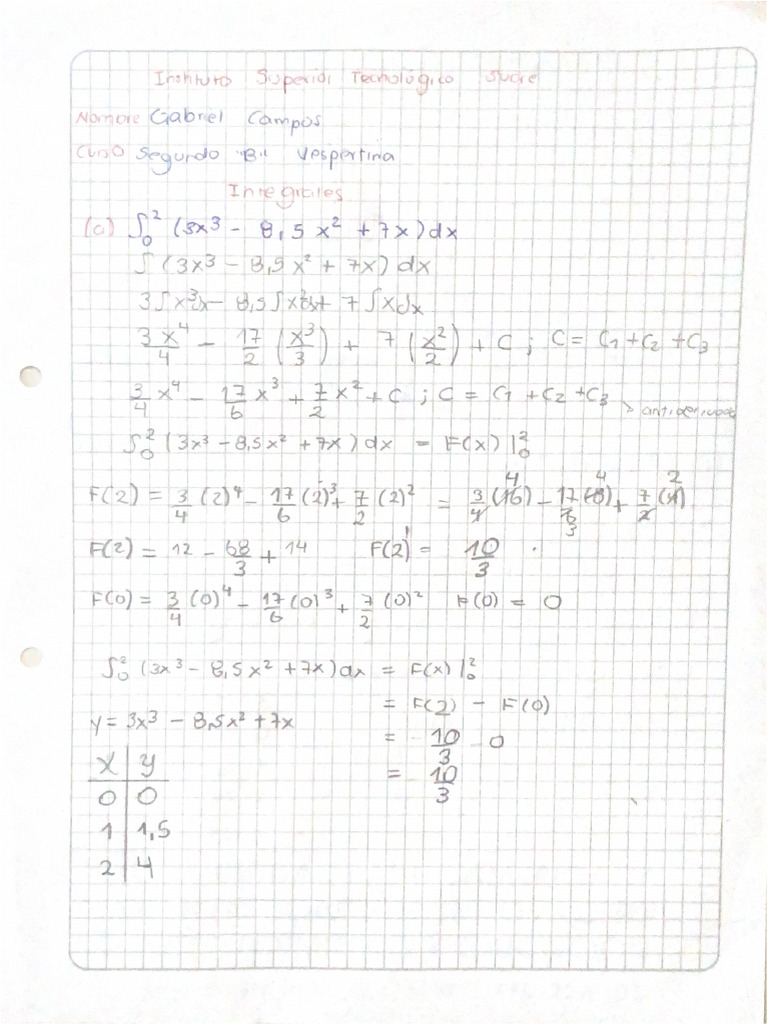 Instituto Superior Tecnológico Sucre
Nombre Gabriel Campos
Curso Segundo "B" Vespertina
Integrales
(a) ∫₀² (3x³ - 8,5x² + 7x) dx
∫ (3x³ - 8,5x² + 7x) dx
3∫x³dx - 8,5∫x²dx + 7∫xdx
3x⁴/4 - 17/2 (x³/3) + 7 (x²/2) + C ; C = C₁ + C₂ + C₃
3/4 x⁴ - 17/6 x³ + 7/2 x² + C ; C = C₁ + C₂ + C₃ > antiderivada
∫₀² (3x³ - 8,5x² + 7x) dx = F(x) |₀²
F(2) = 3/4 (2)⁴ - 17/6 (2)³ + 7/2 (2)² = 3/4 (16) 4 - 17/6 3 (8) 4 + 7/2 (4) 2
F(2) = 12 - 68/3 + 14 F(2) = 10/3
F(0) = 3/4 (0)⁴ - 17/6 (0)³ + 7/2 (0)² F(0) = 0
∫₀² (3x³ - 8,5x² + 7x) dx = F(x) |₀²
= F(2) - F(0)
y = 3x³ - 8,5x² + 7x
= 10/3 - 0
= 10/3
x y
0 0
1 1,5
2 4